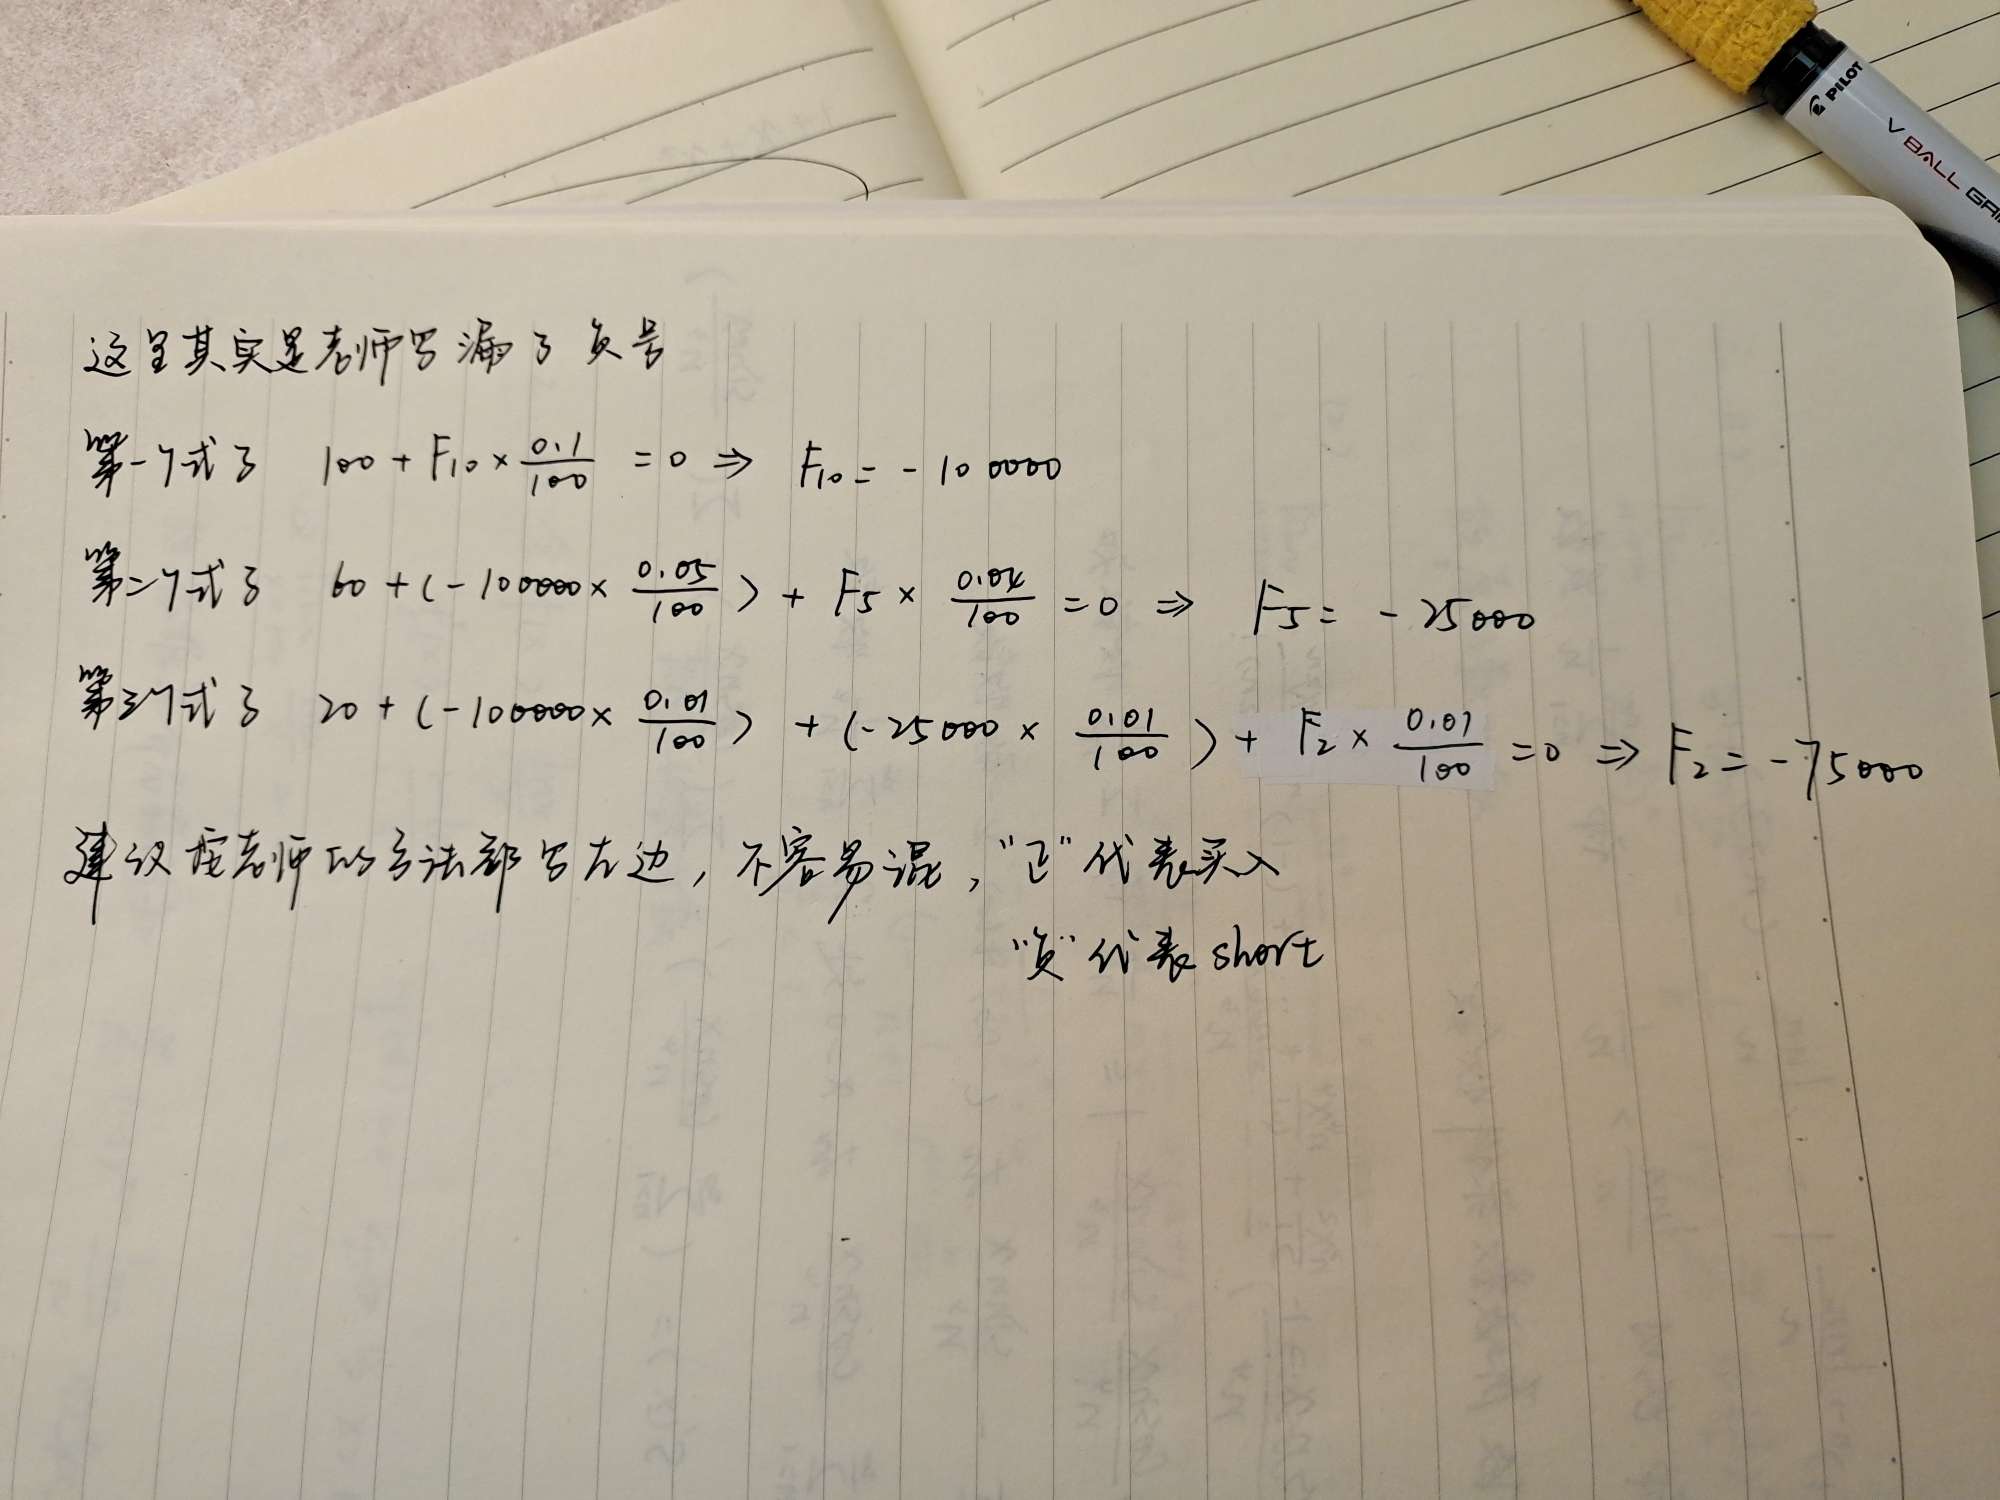 PILOT
V BALL GRI
这里其实是老师写漏了负号
第一个式子 100 + F10 × 0.1/100 = 0 ⇒ F10 = -100000
第二个式子 60 + (-100000 × 0.05/100) + F5 × 0.04/100 = 0 ⇒ F5 = -25000
第三个式子 20 + (-100000 × 0.01/100) + (-25000 × 0.01/100) + F2 × 0.01/100 = 0 ⇒ F2 = -75000
建议按老师的方法都写左边，不容易混，“正”代表买入
“负”代表short